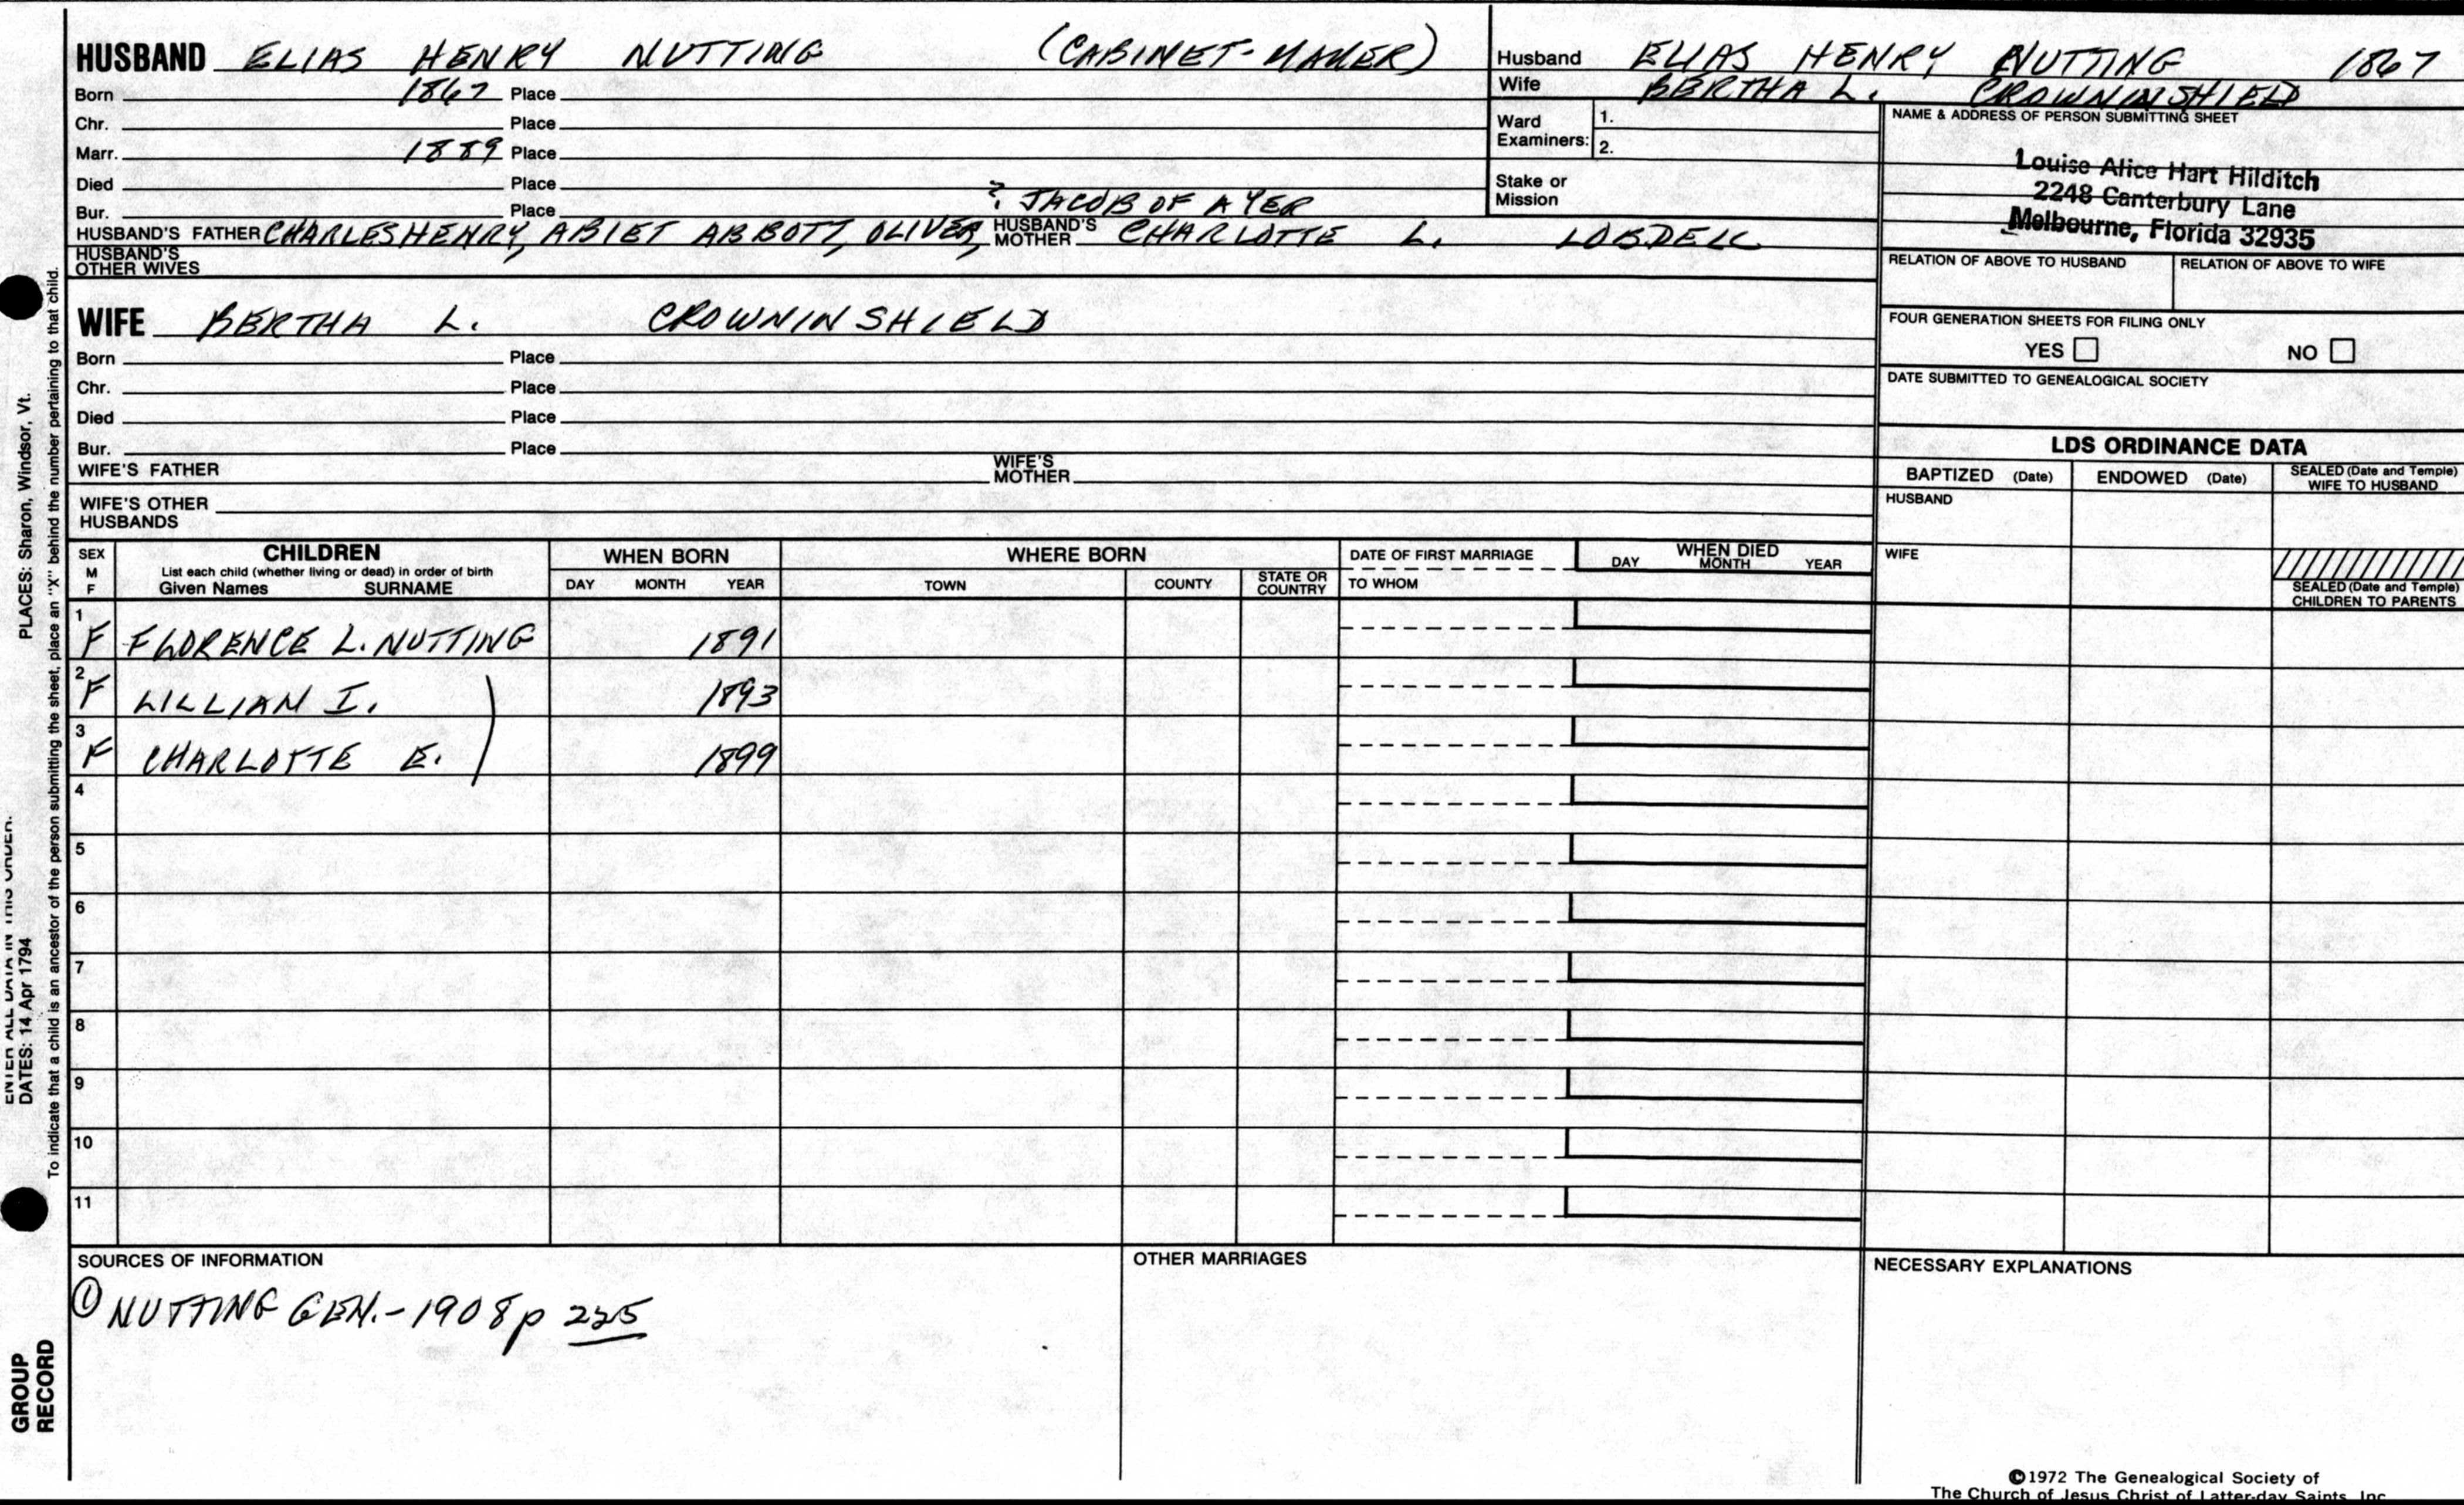 HUSBAND ELIAS HENRY NUTTING (CABINET-MAKER)
Born 1867 Place
Chr. Place
Marr. 1889 Place
Died Place
Bur. Place ? JACOB OF AYER
HUSBAND'S FATHER CHARLES HENRY, ABIET ABBOTT, OLIVER, HUSBAND'S MOTHER CHARLOTTE L. LOBDELL
HUSBAND'S OTHER WIVES
Husband ELIAS HENRY NUTTING 1867
Wife BERTHA L. CROWNINSHIELD
Ward Examiners: 1.
2.
Stake or Mission
NAME & ADDRESS OF PERSON SUBMITTING SHEET
Louise Alice Hart Hilditch
2248 Canterbury Lane
Melbourne, Florida 32935
RELATION OF ABOVE TO HUSBAND RELATION OF ABOVE TO WIFE
FOUR GENERATION SHEETS FOR FILING ONLY
YES NO
DATE SUBMITTED TO GENEALOGICAL SOCIETY
WIFE BERTHA L. CROWNINSHIELD
Born Place
Chr. Place
Died Place
Bur. Place
WIFE'S FATHER WIFE'S MOTHER
WIFE'S OTHER HUSBANDS
LDS ORDINANCE DATA
BAPTIZED (Date) ENDOWED (Date) SEALED (Date and Temple) WIFE TO HUSBAND
HUSBAND
WIFE
SEALED (Date and Temple) CHILDREN TO PARENTS
SEX M F
CHILDREN
List each child (whether living or dead) in order of birth
Given Names SURNAME
WHEN BORN
DAY MONTH YEAR
WHERE BORN
TOWN COUNTY STATE OR COUNTRY
DATE OF FIRST MARRIAGE
TO WHOM
WHEN DIED
DAY MONTH YEAR
1 F FLORENCE L. NUTTING 1891
2 F LILLIAN I. 1893
3 F CHARLOTTE E. 1899
4
5
6
7
8
9
10
11
SOURCES OF INFORMATION
① NUTTING GEN.-1908 p 225
OTHER MARRIAGES
NECESSARY EXPLANATIONS
©1972 The Genealogical Society of
The Church of Jesus Christ of Latter-day Saints, Inc
ENTER ALL DATA IN THIS ORDER:
DATES: 14 Apr 1794 PLACES: Sharon, Windsor, Vt.
To indicate that a child is an ancestor of the person submitting the sheet, place an "X" behind the number pertaining to that child.
GROUP
RECORD